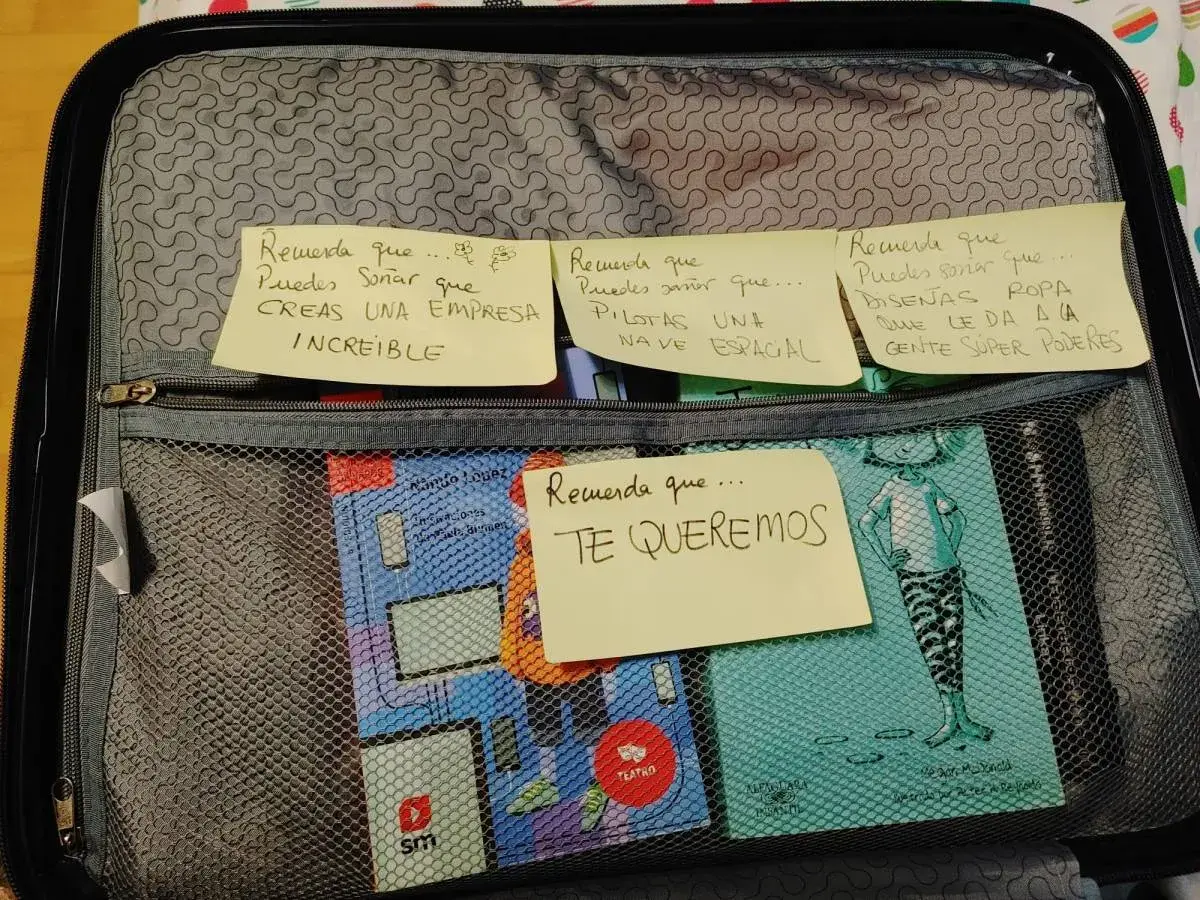 Recuerda que ...
Puedes soñar que
CREAS UNA EMPRESA
INCREÍBLE
Recuerda que
Puedes soñar que...
PILOTAS UNA
NAVE ESPACIAL
Recuerda que
Puedes soñar que...
DISEÑAS ROPA
QUE LE DA A LA
GENTE SÚPER PODERES
Recuerda que...
TE QUEREMOS
Nando López
Ilustraciones
TEATRO
sm
Megan McDonald